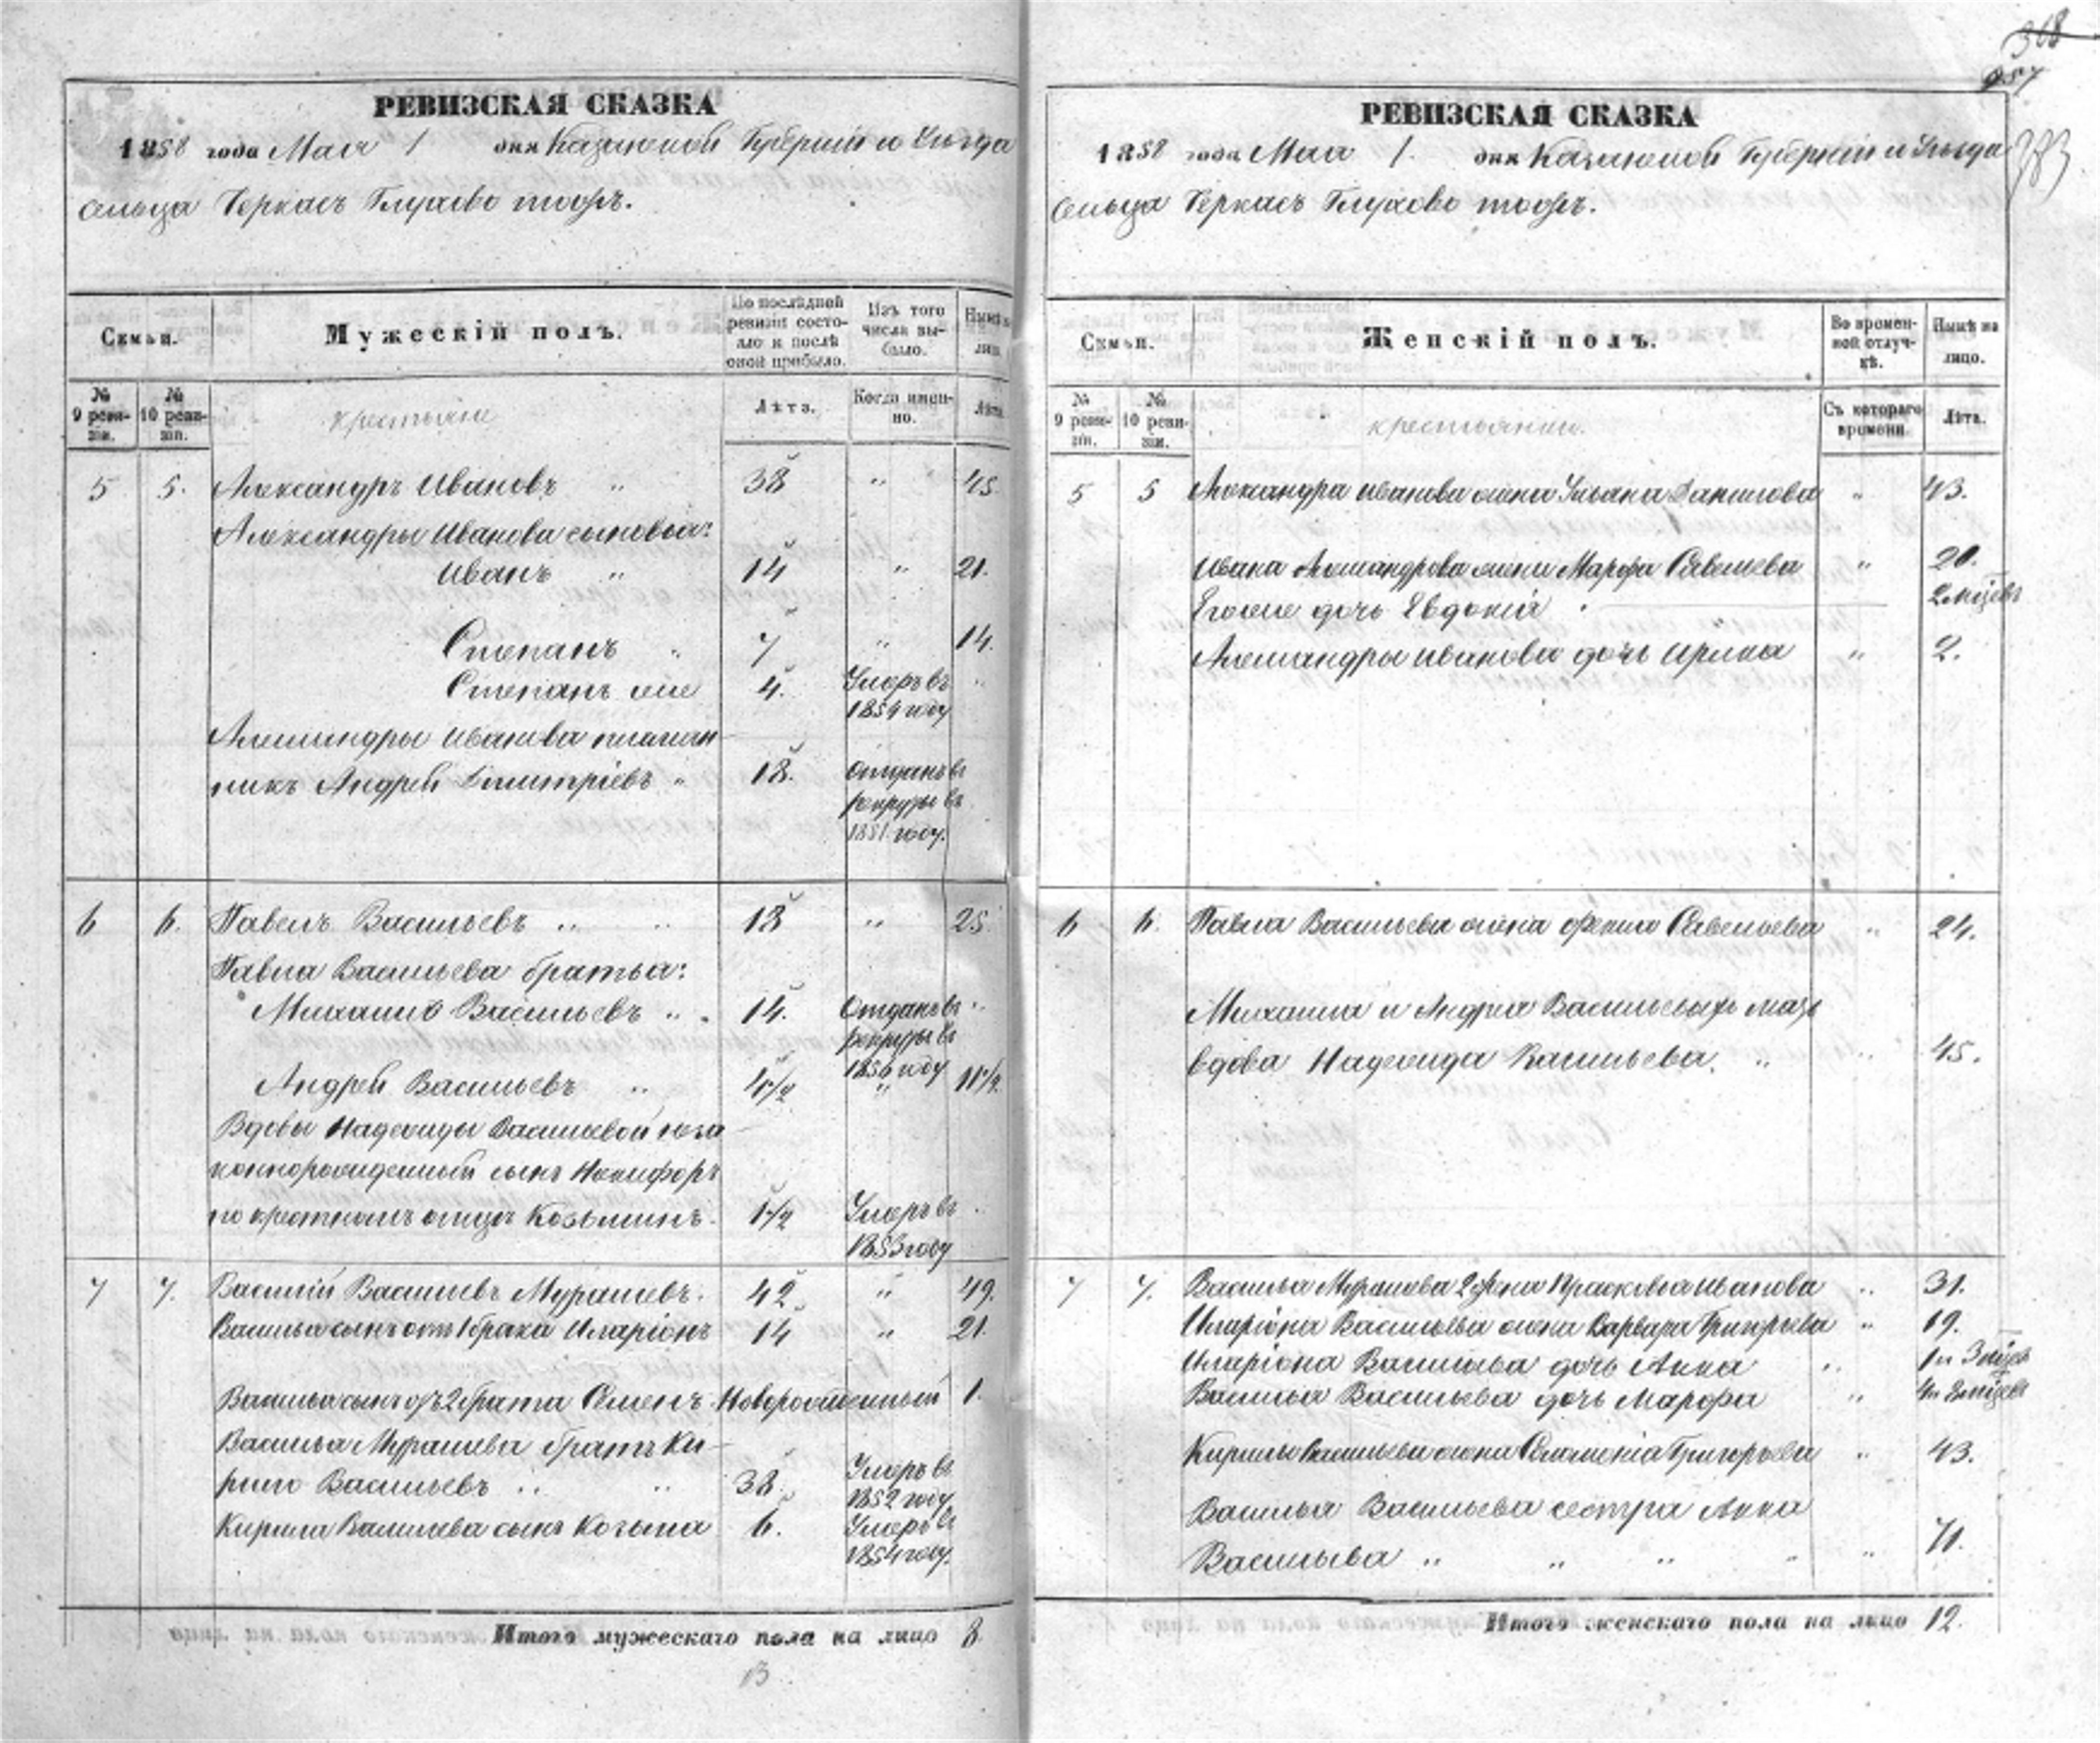 368
257
383
РЕВИЗСКАЯ СКАЗКА
1858 года Мая 1 дня Казанской Губерніи и Уѣзда
сельца Черкасъ Глухово тожъ.
Семьи.
Мужескій полъ.
По послѣдней ревизіи состояло и послѣ оной прибыло.
Изъ того числа выбыло.
Нынѣ на лицо.
№ 9 ревизіи.
№ 10 ревизіи.
крестьяне
Лѣта.
Когда именно.
Лѣта.
5 5. Александръ Ивановъ " 38 " 45.
Александры Иванова сыновья:
Иванъ " 14 " 21.
Степанъ " 7 " 14.
Степанъ же 4. Умеръ въ 1854 году "
Александры Иванова племян
никъ Андрей Дмитріевъ " 18. Отданъ въ рекруты въ 1851 году.
6 6. Павелъ Васильевъ " " 18 " 25
Павла Васильева братья:
Михаило Васильевъ " 14. Отданъ въ рекруты въ 1856 году "
Андрей Васильевъ " 4 1/2 " 11 1/2.
Вдовы Надежды Васильевой неза
коннорожденный сынъ Никифоръ
по крестномъ отцѣ Козьминъ. 1/2 Умеръ въ 1853 году
7 7. Василій Васильевъ Мурашевъ. 42 " 49.
Василья сынъ отъ 1 брака Иларіонъ 14 " 21.
Василья сынъ отъ 2 брака Семенъ Новорожденный 1.
Василья Мурашева братъ Ки-
рило Васильевъ " " 38. Умеръ въ 1852 году
Кирила Васильева сынъ Козьма 6. Умеръ въ 1854 году.
Итого мужескаго пола на лицо 8.
В
РЕВИЗСКАЯ СКАЗКА
1858 года Мая 1. дня Казанской Губерніи и Уѣзда
сельца Черкасъ Глухово тожъ.
Семьи.
Женскій полъ.
Во временной отлучкѣ.
Нынѣ на лицо.
№ 9 ревизіи.
№ 10 ревизіи.
крестьянки.
Съ котораго времени
Лѣта.
5 5 Александра Иванова жена Ульяна Данилова " 43.
Ивана Александрова жена Марфа Савельева " 20.
Егоже дочь Евдокія 2 мѣсяцевъ
Александры Иванова дочь Ирина " 2.
6 6. Павла Васильева жена Савельева " 24.
Михаила и Андрея Васильевыхъ мать
вдова Надежда Васильева. " " 45.
7 7. Василья Мурашова 2 жена Прасковья Иванова " 31.
Иларіона Васильева жена Варвара Григорьева " 19.
Иларіона Васильева дочь Анна " 1 и 3 мѣсяц
Василья Васильева дочь Марфа " 4 и 8 мѣсяцев
Кирилы Васильева жена Соломонія Григорьева " 43.
Василья Васильева сестра Анна
Васильева " " " " " 71.
Итого женскаго пола на лицо 12.